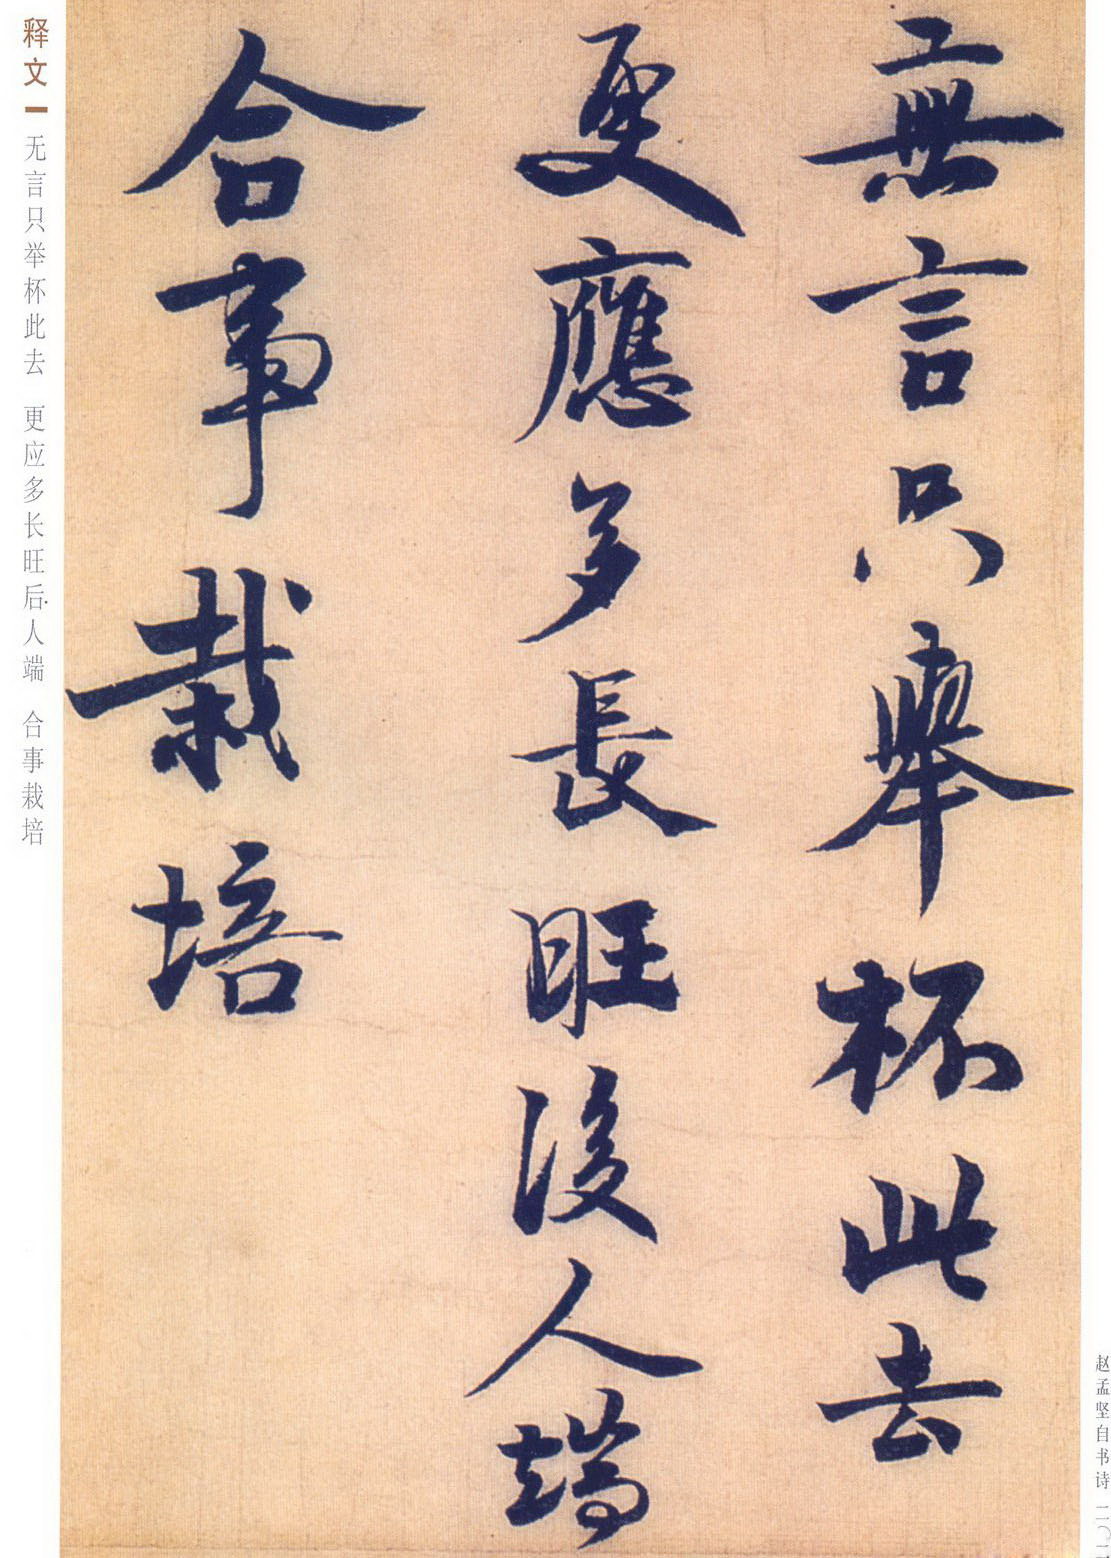 無言只舉杯此去
更應多長旺後人端
合事栽培
释文 无言只举杯此去 更应多长旺后人端 合事栽培
赵孟坚自书诗